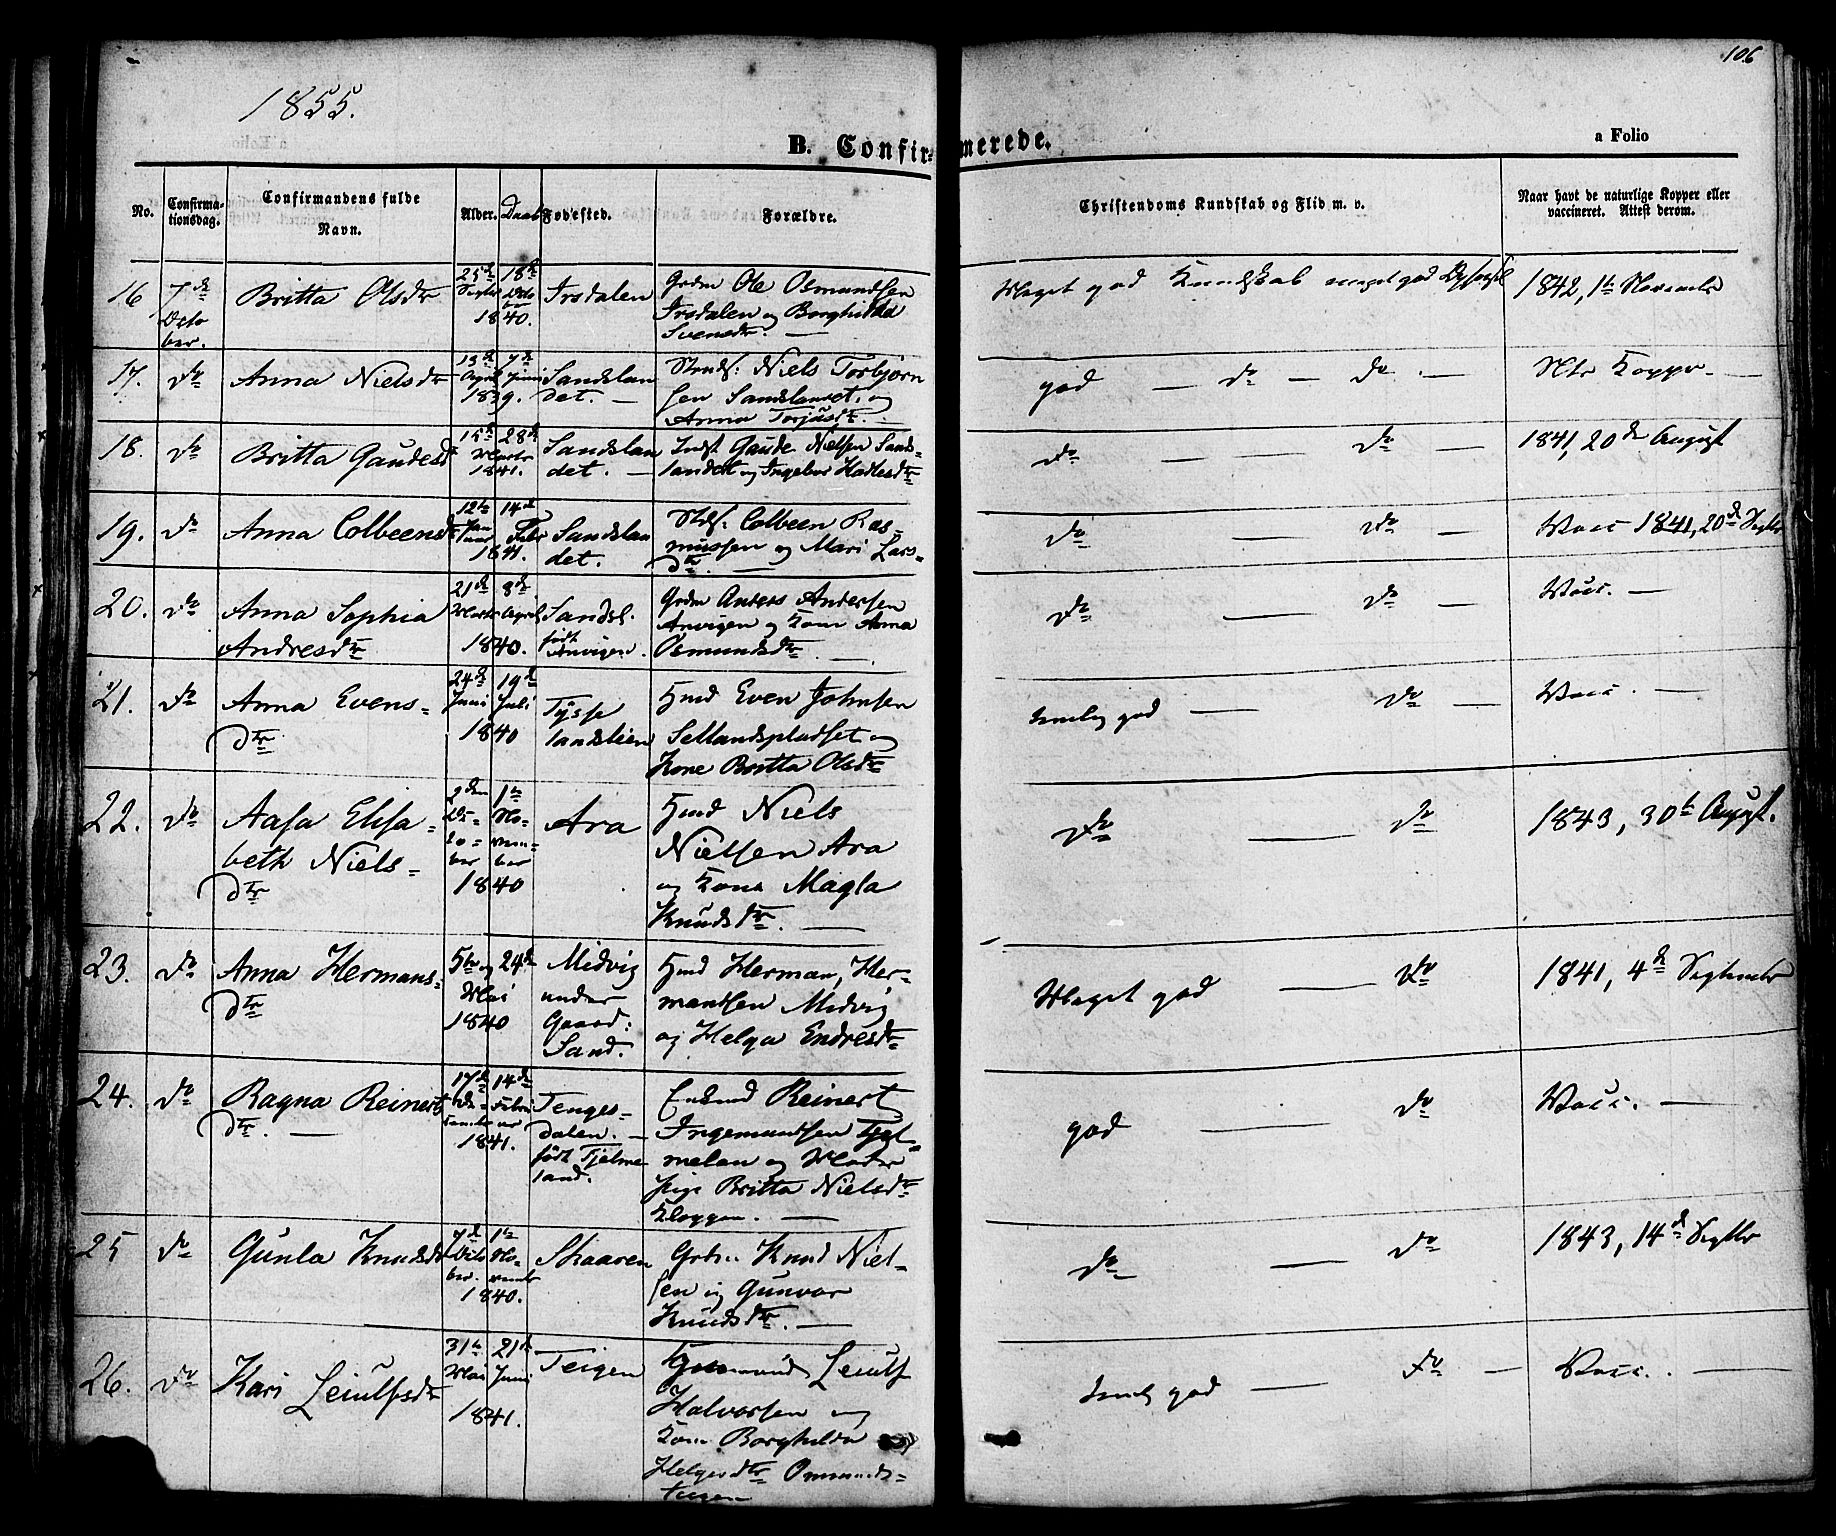 106
1855.
B. Confir-
merede.
a Folio
No.
Confirma-
tionsdag.
Confirmandens fulde
Navn.
Alder.
Daab
Fødested.
Forældre.
Christendoms Kundskab og Flid m. v.
Naar havt de naturlige Kopper eller
vaccineret. Attest derom.
16 7de Octo ber. Britta Olsdtr 25de Septbr 18de Octo ber 1840. Irsdalen Grdm Ole Osmundsen
Irsdalen og Borghilda
Svensdtr. —
Meget god Kundskab meget god 1842, 1te Novembr
17. Do Anna Nielsdtr 13de April 7de Juni 1839. Sandslan
det. — Niels Torbjørn
sen Sandslandet. og
Anna Torjusdtr. —
god — do — do — Ntr Kopper —
18. Do Britta Gaudesdtr 15de Marts 28de 1841. Sandslan
det. — Indst Gaude Nielsen Sands-
landet og Ingebor Hadlesdtr
do — do — 1841, 20de August
19. Do Anna Colbeensdtr 12te Jan uar 14de Febr 1841. Sandslan
det. Colbeen Ras-
mussen og Mari Lars-
dtr. —
do — do — Vacc 1841, 20de Septbr
20. Do Anna Sophia
Andresdtr 21de Marts 8de April 1840. Sandsl.
født
Anvigen. Grdm Anders Andersen
Anvigen og Kone Anna
Osmundsdtr. —
do — do — Vacc. —
21. Do Anna Evens-
dtr 24de Juni 19de Juli 1840 Tysse
landslien Hmd Even Johnsen
Sellandspladset og
Kone Britta Olsdtr
temlig god — do — Vacc. —
22. Do Aasa Elisa-
beth Niels-
dtr 2den Oc-
to-
ber 1te No-
vem-
ber 1840 Ara Hmd Niels
Nielsen Ara
og Kone Magla
Knudsdtr. —
do — do 1843, 30te August.
23. Do Anna Hermans-
dtr 5te og 24de Mai 1840 Midvig
under
Gaard:
Sand. Hmd Herman Her-
mansen Midvig
og Helga Endresdtr
Meget god — do 1841, 4de Septembr
24. Do Ragna Reinerts
dtr. — 17de De-
cember 14de Febru
ar 1841. Tenges-
dalen. —
født Tjelme
land. Reinert
Ingemundsen Tjel-
melan og
pige Britta Nielsdtr
Kloggen. —
god — do Vacc. —
25 Do Gunla Knudsdtr 7de Octo
ber. 1te No-
vembr 1840. Skaaren Knud Niel-
sen og Gunvor
Knudsdtr. —
do — do 1843, 14de Septbr
26. Do Kari Leiulfsdtr 31te Mai 21de Juni 1841. Teigen Leiulf
Halvorsen og
Kone Borghilda
Helgesdtr Ommunds-
teigen
temlig god — do — Vacc. —